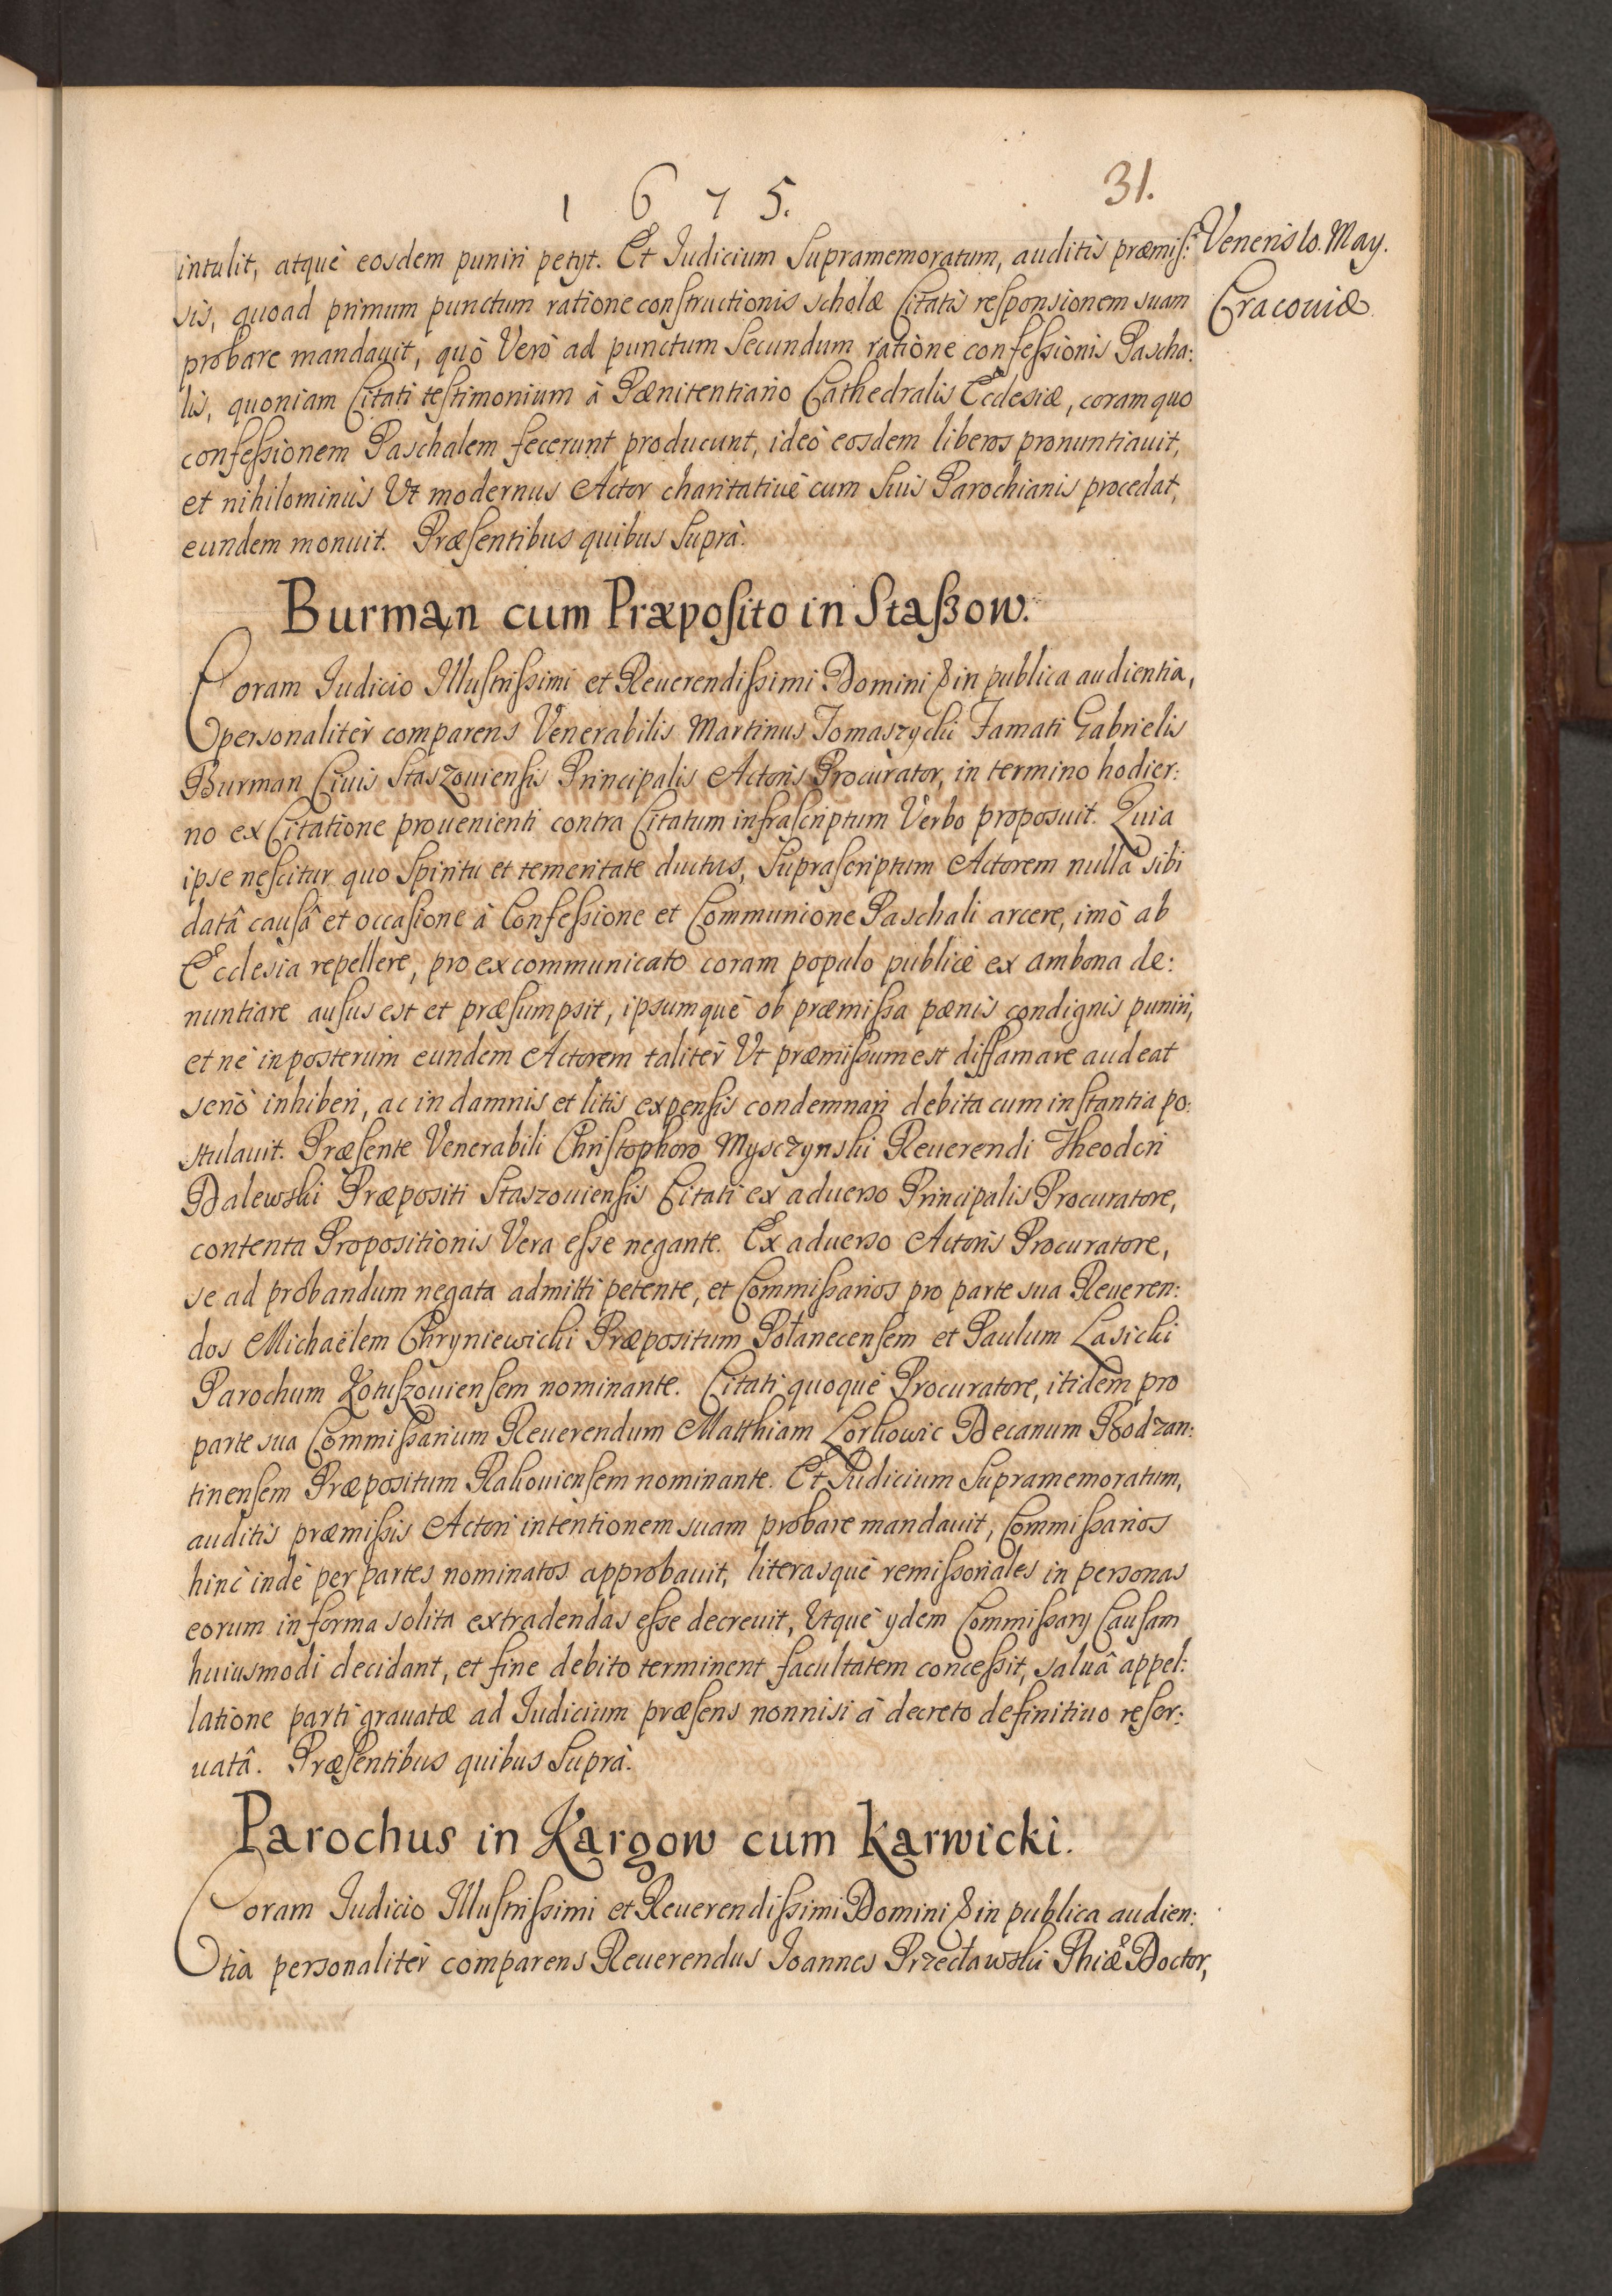 1675.
31.
Veneris 10. May.
Cracouiæ
intulit, atquè eosdem puniri petijt. Et Iudicium Supramemoratum, auditis præmiſ:
sis, quoad primum punctum ratione conſtructionis scholæ Citatis reſponsionem suam
probare mandauit, quò Verò ad punctum Secundum ratiòne confeſsionis Pascha:
lis, quoniam Citati teſtimonium à Pænitentiario Cathedralis Ecclesiæ, coram quo
confeſsionem Paschalem fecerunt producunt, ideò eosdem liberos pronuntiauit,
et nihilominùs Vt modernus Actor charitatiuè cum Suis Parochianis procedat,
eundem monuit. Præſentibus quibus Suprà.
Burman cum Præpoſito in Staſzow.
Coram Iudicio Illuſtriſsimi et Reuerendiſsimi Domini & in publica audientia,
personalitèr comparens Venerabilis Martinus Tomaszycki Famati Gabrielis
Burman Ciuis Staszouienſis Principalis Actoris Procurator, in termino hodier:
no ex Citatione prouenienti contra Citatum infraſcriptum Verbo proposuit. Quia
ipse neſcitur quo Spiritu et temeritate ductus, Supraſcriptum Actorem nullâ sibi
datâ cauſâ et occaſione à Confeſsione et Communione Paschali arcere, imò ab
Ecclesia repellere, pro excommunicato coram populo publicè ex ambona de:
nuntiare auſus est et præſumpsit, ipsumquè ob præmiſsa pænis condignis puniri,
et nè in posterùm eundem Actorem talitèr Vt præmiſsum est diffamare audeat
seriò inhiberi, ac in damnis et litis expenſis condemnari debita cum inſtantia po:
stulauit. Præſente Venerabili Chriſtophoro Mysczynski Reuerendi Theodori
Dalewski Præpositi Staszouienſis Citati ex aduerso Principalis Procuratore,
contenta Propositionis Vera eſse negante. Ex aduerso Actoris Procuratore,
se ad probandum negata admitti petente, et Commiſsarios pro parte sua Reueren:
dos Michaëlem Chryniewicki Præpositum Połanecenſem et Paulum Lasicki
Parochum Kotuſzouienſem nominante. Citati quoquè Procuratore, itidem pro
parte sua Commiſsarium Reuerendum Matthiam Lorkowic Decanum Bodzan:
tinenſem Præpositum Rakouienſem nominante. Et Iudicium Supramemoratum,
auditis præmiſsis Actori intentionem suam probare mandauit, Commiſsarios
hinc indè per partes nominatos approbauit, literasquè remiſsoriales in personas
eorum in forma solita extradendas eſse decreuit, Vtquè ijdem Commiſsarij Cauſam
huiusmodi decidant, et fine debito terminent facultatem conceſsit, saluâ appel:
latione parti grauatæ ad Iudicium præſens nonnisi à decreto definitiuo reſer:
uatâ. Præſentibus quibus Suprà.
Parochus in Kargow cum Karwicki.
Coram Iudicio Illuſtriſsimi et Reuerendiſsimi Domini & in publica audien:
tia personalitèr comparens Reuerendus Ioannes Przecławski Phiæ Doctor,